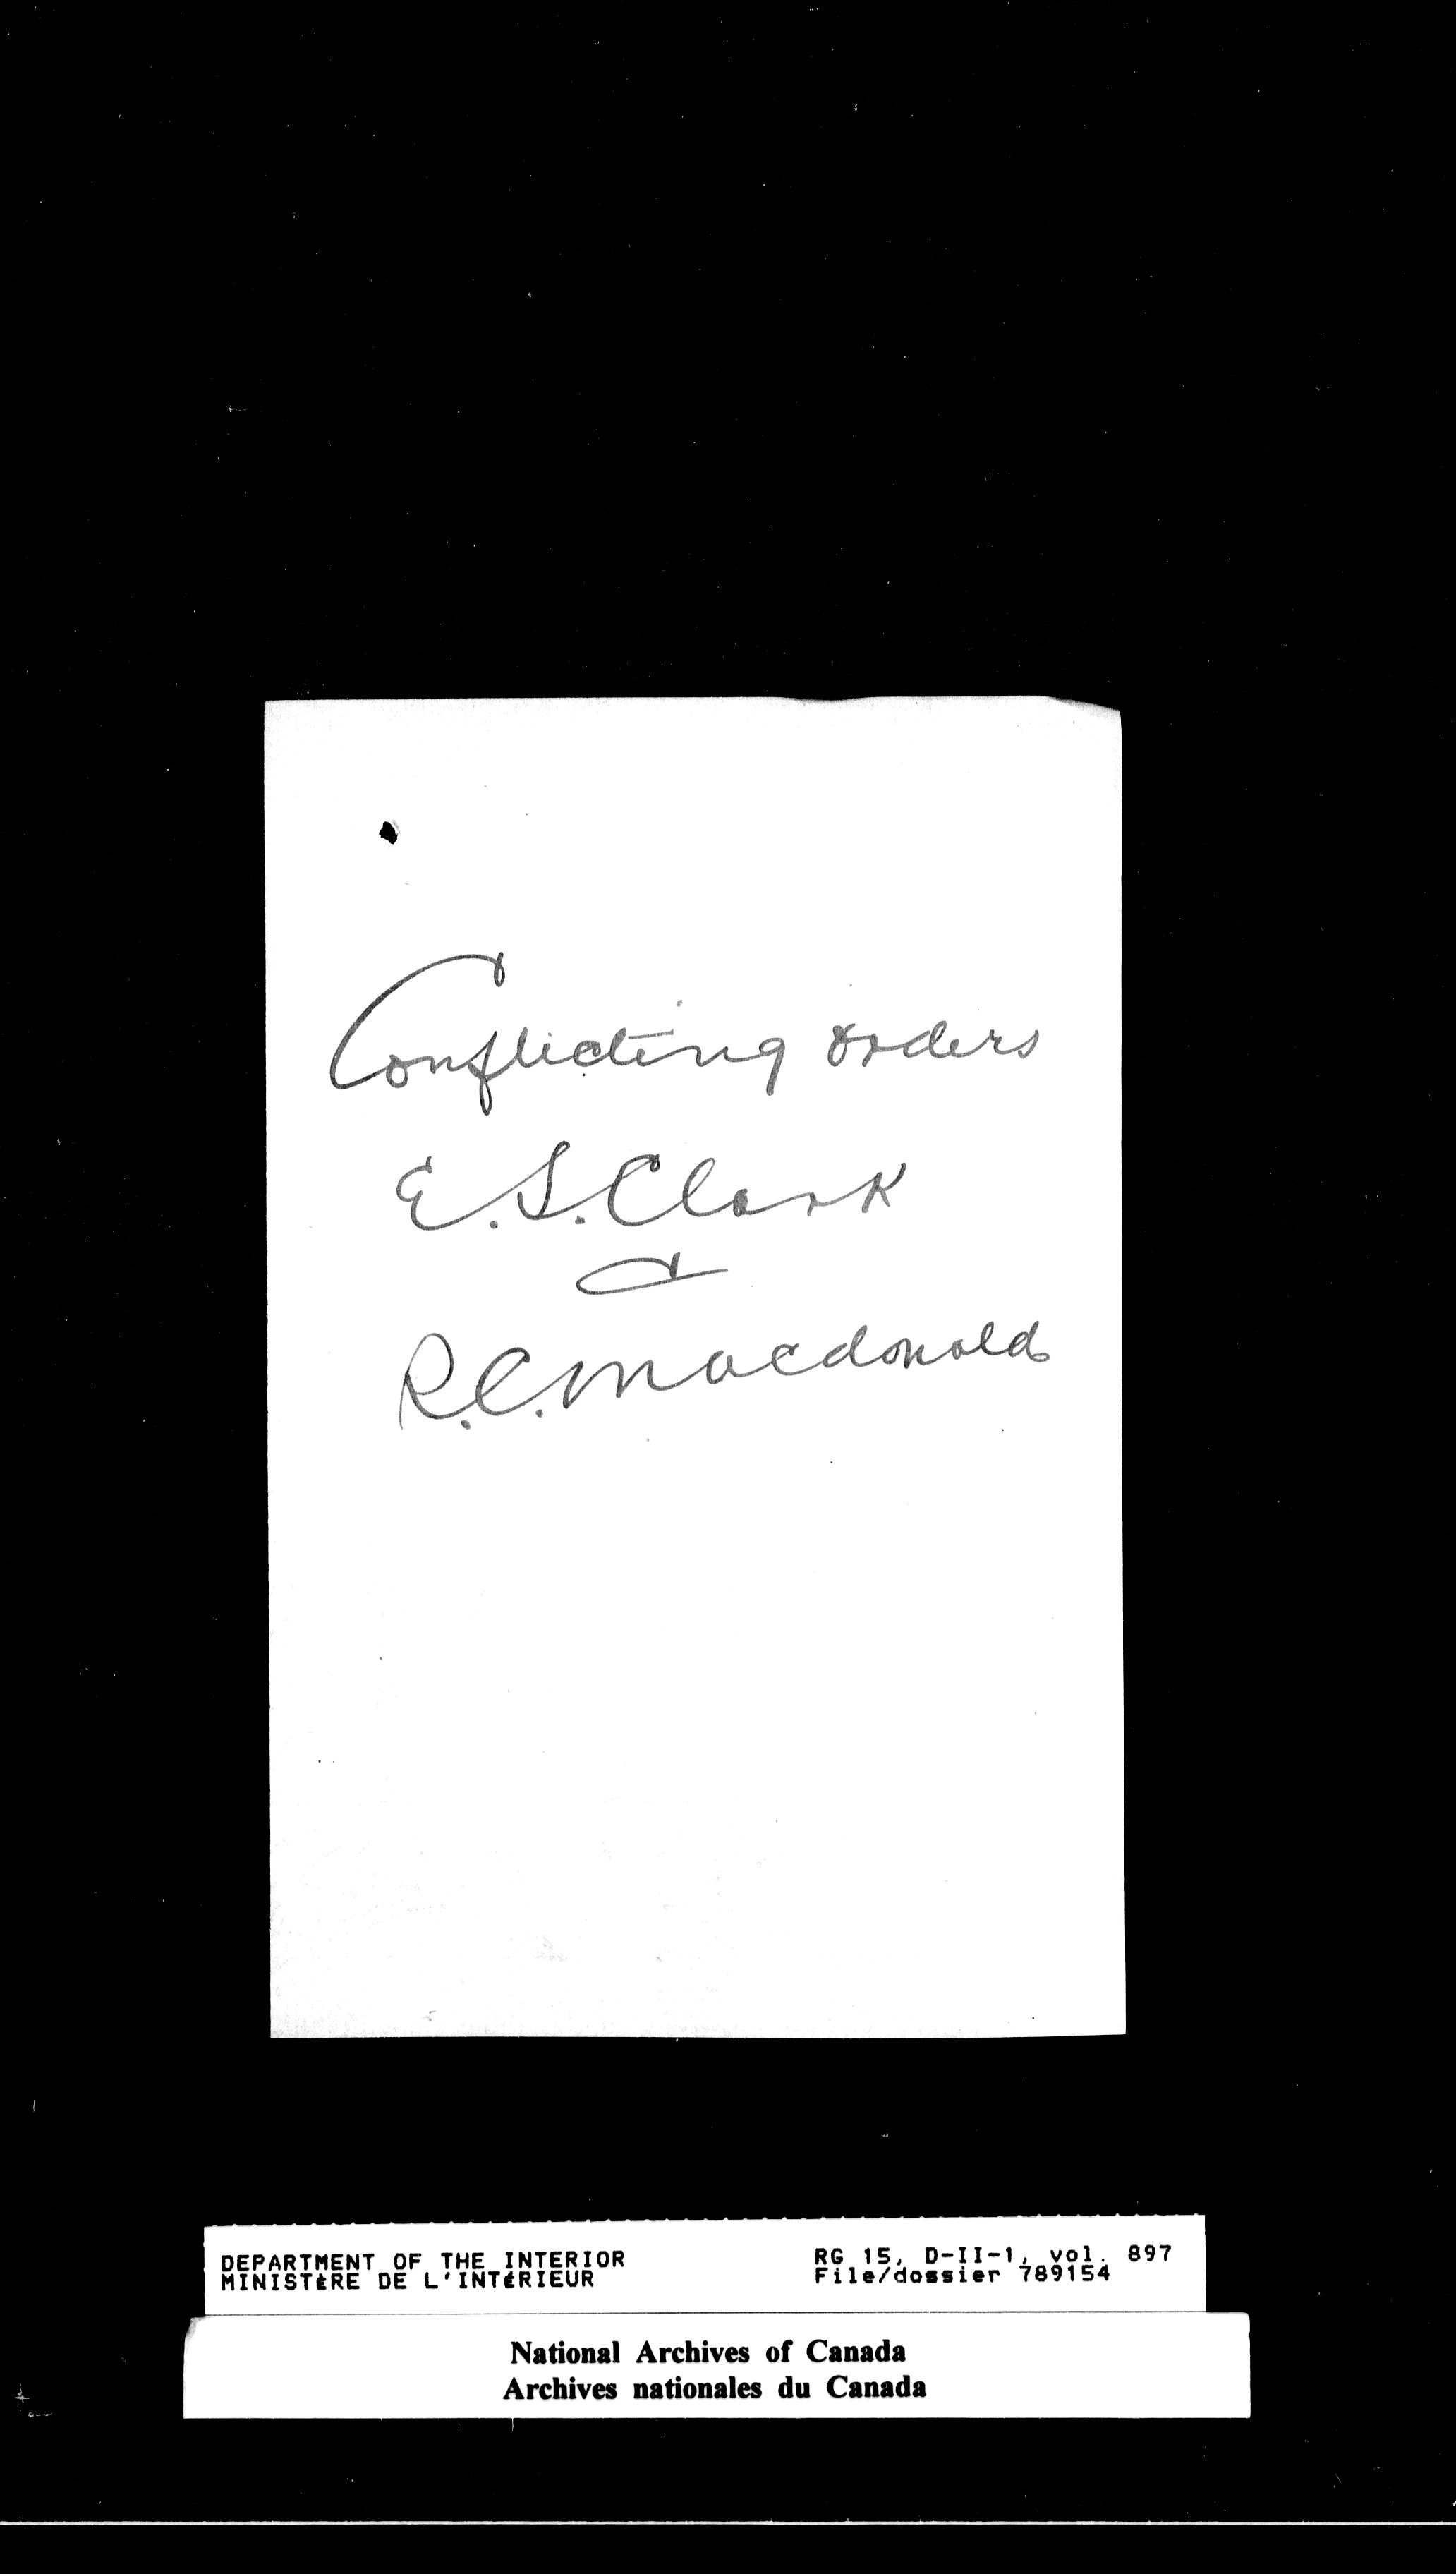 Conflicting orders
E. S. Clark
&
R. C. Macdonald
DEPARTMENT OF THE INTERIOR
MINISTÈRE DE L'INTÉRIEUR
RG 15, D-II-1, vol. 897
File/dossier 789154
National Archives of Canada
Archives nationales du Canada